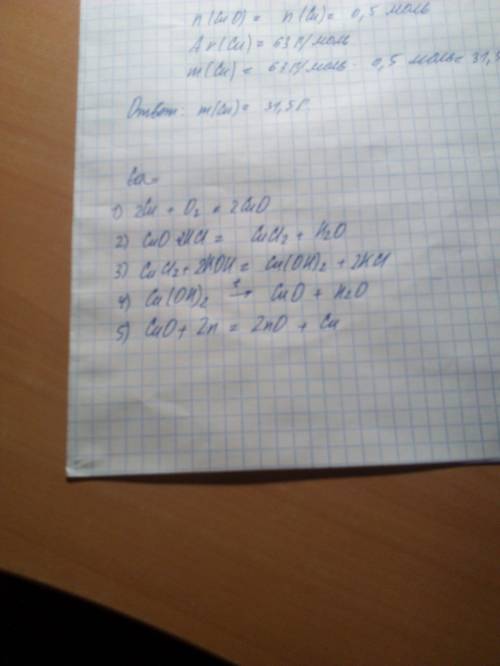 n(CuO) = n(Cu) = 0,5 моль
Ar(Cu) = 63 г/моль
m(Cu) = 63 г/моль · 0,5 моль = 31,5
Ответ: m(Cu) = 31,5 г.
1) 2Cu + O2 = 2CuO
2) CuO + 2HCl = CuCl2 + H2O
3) CuCl2 + 2KOH = Cu(OH)2 + 2KCl
4) Cu(OH)2 t→ CuO + H2O
5) CuO + Zn = ZnO + Cu